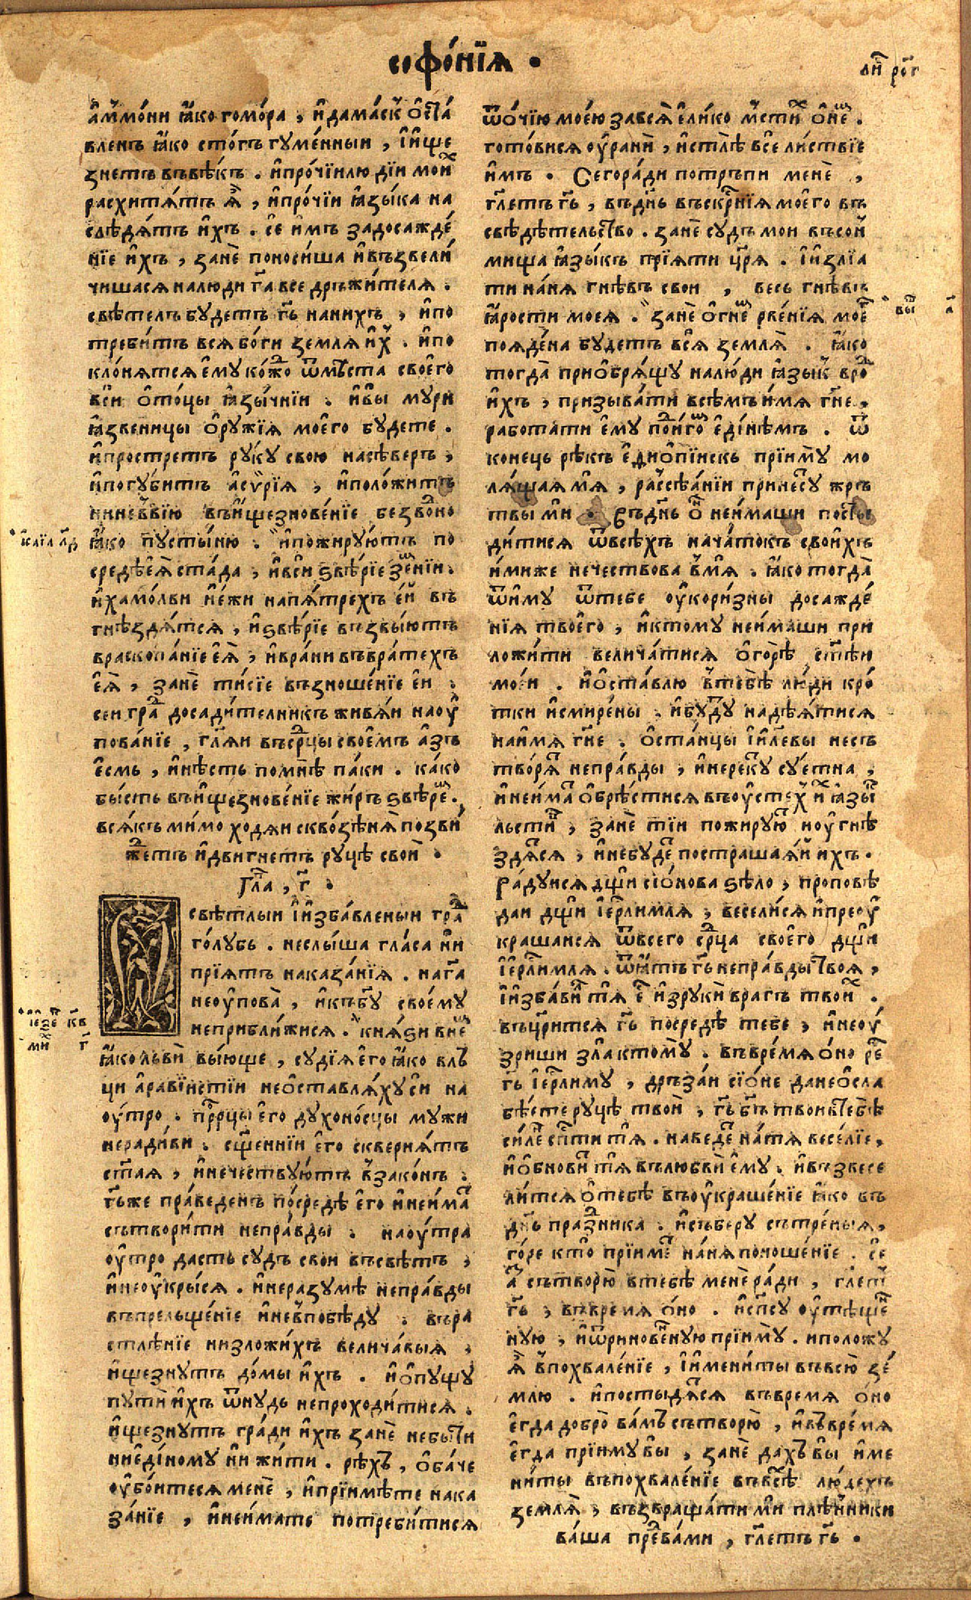 софо́нїѧ .
ли҇ рѻ҃г
а҆м̾мо́ни ꙗ҆́ко гомо́ра , и҆дама́скъ ѻ҆ста́
вленъ ꙗ҆́ко сто́гъ гуме́нныи , и҆и҆ще
знетъ въвѣ́къ . и҆про́чїи лю́дїи мои҆х
расхи́тѧтъ ѧ҆̀ , и҆про́чїи ꙗ҆зы́ка на
слѣ́дѧтъ и҆́хъ . се́ и҆мъ задосажде́
нїе и҆́хъ , занѐ поноси́ша и҆възвели́
чишасѧ налю́ди гс҃а все дръжи́телѧ .
свѣ́телъ бу́детъ гс҃ь нани́хъ , и҆по
треби́тъ всѧ бо́ги землѧ и҆́х . и҆по
кло́нѧтсѧ е҆му ко́ждо ѿмѣ́ста своего̀
вси̑ ѻ҆то́цы ꙗ҆зы́чнїи . и҆вы̀ мури
ꙗ҆́звеницы ѻ҆ру́жїѧ моего̀ бу́дете .
и҆простретъ ру́ку свою насѣ́веръ ,
и҆погуби́тъ а҆сѵ́рїѧ , и҆положи́тъ
ниневві́ю въи҆щезнове́нїе безво́дно
ꙗ҆́ко пусты́ню . и҆пожиру́ютъ по
средѣ̀ е҆ѧ̀ ста́да , и҆вси̑ ѕвѣ́рїе зе́мнїи .
и҆хамо́лви и҆е҆́жи напѧ́трехъ е҆ѝ въ
гнѣздѧ́тсѧ , и҆ѕвѣ́рїе възвы́ютъ
враскопа́нїе е҆ѧ̀ , и҆вра́ни въвра́техъ
е҆ѧ̀ , занѐ ти́сїе възноше́нїе е҆и .
сеи гра́д досади́телникъ живѧ́и наоу҆
пова́нїе , гл҃ѧи въсе́рдцы свое́мъ а҆́зъ
е҆́смь , и҆нѣ́сть помнѣ̀ па́ки . ка́ко
бы́сть въи҆щезнове́нїе жи́ръ ѕвѣре́м .
всѧ́къ ми́мо ходѧ́и сквозѣ́нѧ позви́
ждетъ и҆дви́гнетъ ру́цѣ свои̑ .
гл҃а , г҃ .
свѣ́тлыи и҆и҆зба́вленыи гра́д
го́лубь . неслы́ша гла́са ни
прїѧ́тъ наказа́нїѧ . нагс҃а
неоу҆пова̀ , и҆къбг҃у своему
неприбли́жисѧ . кнѧ́ѕи внем
ꙗ҆́ко львѝ выю́ще , су́дїѧ е҆го̀ ꙗ҆́ко влъ
ци а҆рави́истїи неѻ҆ставлѧ́хуси на
оу҆́тро . пр҃рцы е҆го̀ духоно́сцы му́жи
неради́ви . сщ҃е́ннїи е҆го̀ сквернѧ́тъ
ст҃аѧ , и҆нече́ствуютъ взако́нъ .
гс҃ь же пра́веденъ посредѣ̀ е҆го̀ и҆неи́мат
сътвори́ти непра́вды . наоу҆́тра
оу҆́тро да́стъ су́дъ свои въсвѣ́тъ ,
и҆неоу҆кры́сѧ . и҆неразумѣ̀ непра́вды
въпрельще́нїе и҆невпобѣ́ду . въра
стлѣ́нїе низложи́хъ велича́выѧ ,
и҆ще́знутъ до́мы и҆́хъ . и҆ѻ҆пущу̀
пути̑ и҆́хъ ѿню́дь непроходи́тисѧ .
и҆ще́знутъ гра́ди и҆́хъ занѐ небы́ти
ниеди́ному ни жи́ти . рѣ́хъ , ѻ҆ба́че
оу҆бо́итесѧ менѐ , и҆прїимѣ́те нака
за́нїе , и҆неи́мате потреби́тисѧ
ѿо́чїю мое́ю завсѧ̑ е҆ли́ко мсти́х ѻ҆не́м .
гото́висѧ оу҆ра́ни , и҆стлѣ̀ все ли́ствїе
и҆́мъ . Сегора́ди потръпѝ менѐ ,
гл҃етъ гс҃ь , въдн҃ь въскрн҃їѧ моего̀ въ
свѣдѣ́тельство . занѐ су́дъ мои въсо́и
мища ꙗ҆зы́къ прїѧ́ти цр҃ѧ . и҆излїа́
ти на́нѧ гнѣ́въ свои , весь гнѣ́въ
ꙗ҆́рости моеѧ̀ . занѐ ѻ҆гнем рве́нїѧ моег
поѧде́на бу́детъ всѧ̀ землѧ̀ . ꙗ҆́ко
тогда̀ приѻ҆брѧ́щу налю́ди ꙗ҆зы́к вро́д
и҆́хъ , призыва́ти всѣ́мъ и҆́мѧ гн҃е ,
рабо́тати е҆му под и҆́гом е҆ди́нѣмъ . ѿ
коне́ць рѣ́къ е҆дио҆пі́искъ прїиму̀ мо
лѧ́щаѧ мѧ̀ , разсѣ́анїи принесу́ жръ
твы ми̑ . Въдн҃ь ѻ҆́н неи́маши посты
ди́тисѧ ѿвсѣ́хъ нача́токъ свои́хъ
и҆ми́же нечествова̀ вмѧ̀ . ꙗ҆́ко тогда̀
ѿиму̀ ѿтебѐ оу҆кори́зны досажде́
нїѧ твоего̀ , и҆ктому неи́маши при
ложи́ти велича́тисѧ ѻ҆горѣ̀ ст҃ѣи
мое́и . и҆ѻ҆ста́влю втебѣ̀ лю́ди кро́
тки и҆смире́ны . и҆бу́дут надѣ́ѧтисѧ
наи҆́мѧ гн҃е . ѻ҆ста́нцы і҆и҃левы несъ
творѧ́т непра́вды , и҆нереку́т су́етна ,
и҆неи́мат ѻ҆брѣ́стисѧ въоу҆сте́х и҆х ꙗ҆зы́к
льсти́в , занѐ тїи пожиру́ют ноу҆гнѣ
здѧ́тсѧ , и҆небу́дет пострашаѧ́и и҆хъ .
Ра́дуисѧ дщ҃и сїо́нова ѕѣ́ло , проповѣ́
даи дщ҃и і҆ерл҃и́млѧ , весели́сѧ и҆преоу҆
краша́исѧ ѿвсего̀ ср҃дца своего̀ дщ҃и
і҆ерл҃и́млѧ . ѿѧ҆́тъ гс҃ь непра́вды твоѧ̀ ,
і҆и҆зба́вит тѧ̀ е҆ст и҆зрукѝ вра́гъ твои́х .
въцр҃итсѧ гс҃ь посредѣ̀ тебѐ , и҆неоу҆́
зриши зла̀ ктому̀ . въвре́мѧ ѻ҆́но рече
гс҃ь і҆ерл҃и́му , дръза́и сїо́не данеѻ҆сла
бѣ́ете ру́цѣ твои̑ , гс҃ь бг҃ъ твои втебѣ̀
си́ленъ сп҃сти тѧ̀ . наведе́т на́тѧ весе́лїе ,
и҆ѻ҆бнови́т тѧ̀ вълюбвѝ е҆му̀ . и҆възвесе
ли́тсѧ ѻ҆тебѣ̀ въоу҆краше́нїе ꙗ҆́ко въ
дн҃ь пра́здника . и҆съберу̀ сътре́ныѧ ,
го́ре кто̀ прїиме́т на́нѧ поноше́нїе . се́
а҆́з сътворю̀ втебѣ̀ менѐ ра́ди , гл҃ет
гс҃ь , въвре́мѧ ѻ҆́но . и҆сп҃су оу҆тѣще́н
ную , и҆ѿринове́нную прїиму̀ . и҆положу̀
ѧ҆̀ впохвале́нїе , і҆имени́ты въвсю̀ зе́
млю . и҆постыдѧ́тсѧ въвре́мѧ ѻ҆но
е҆гда̀ добро̀ ва́мъ сътворю̀ , и҆въвре́мѧ
е҆гда̀ прїиму вы̀ , занѐ да́хъ вы̀ и҆ме
ни́ты въпохвале́нїе въвсѣ́х лю́дехъ
землѧ̀ , възвраща́ти ми̑ плѣ́нники
ва́ша пре́двами , гл҃етъ гс҃ь .